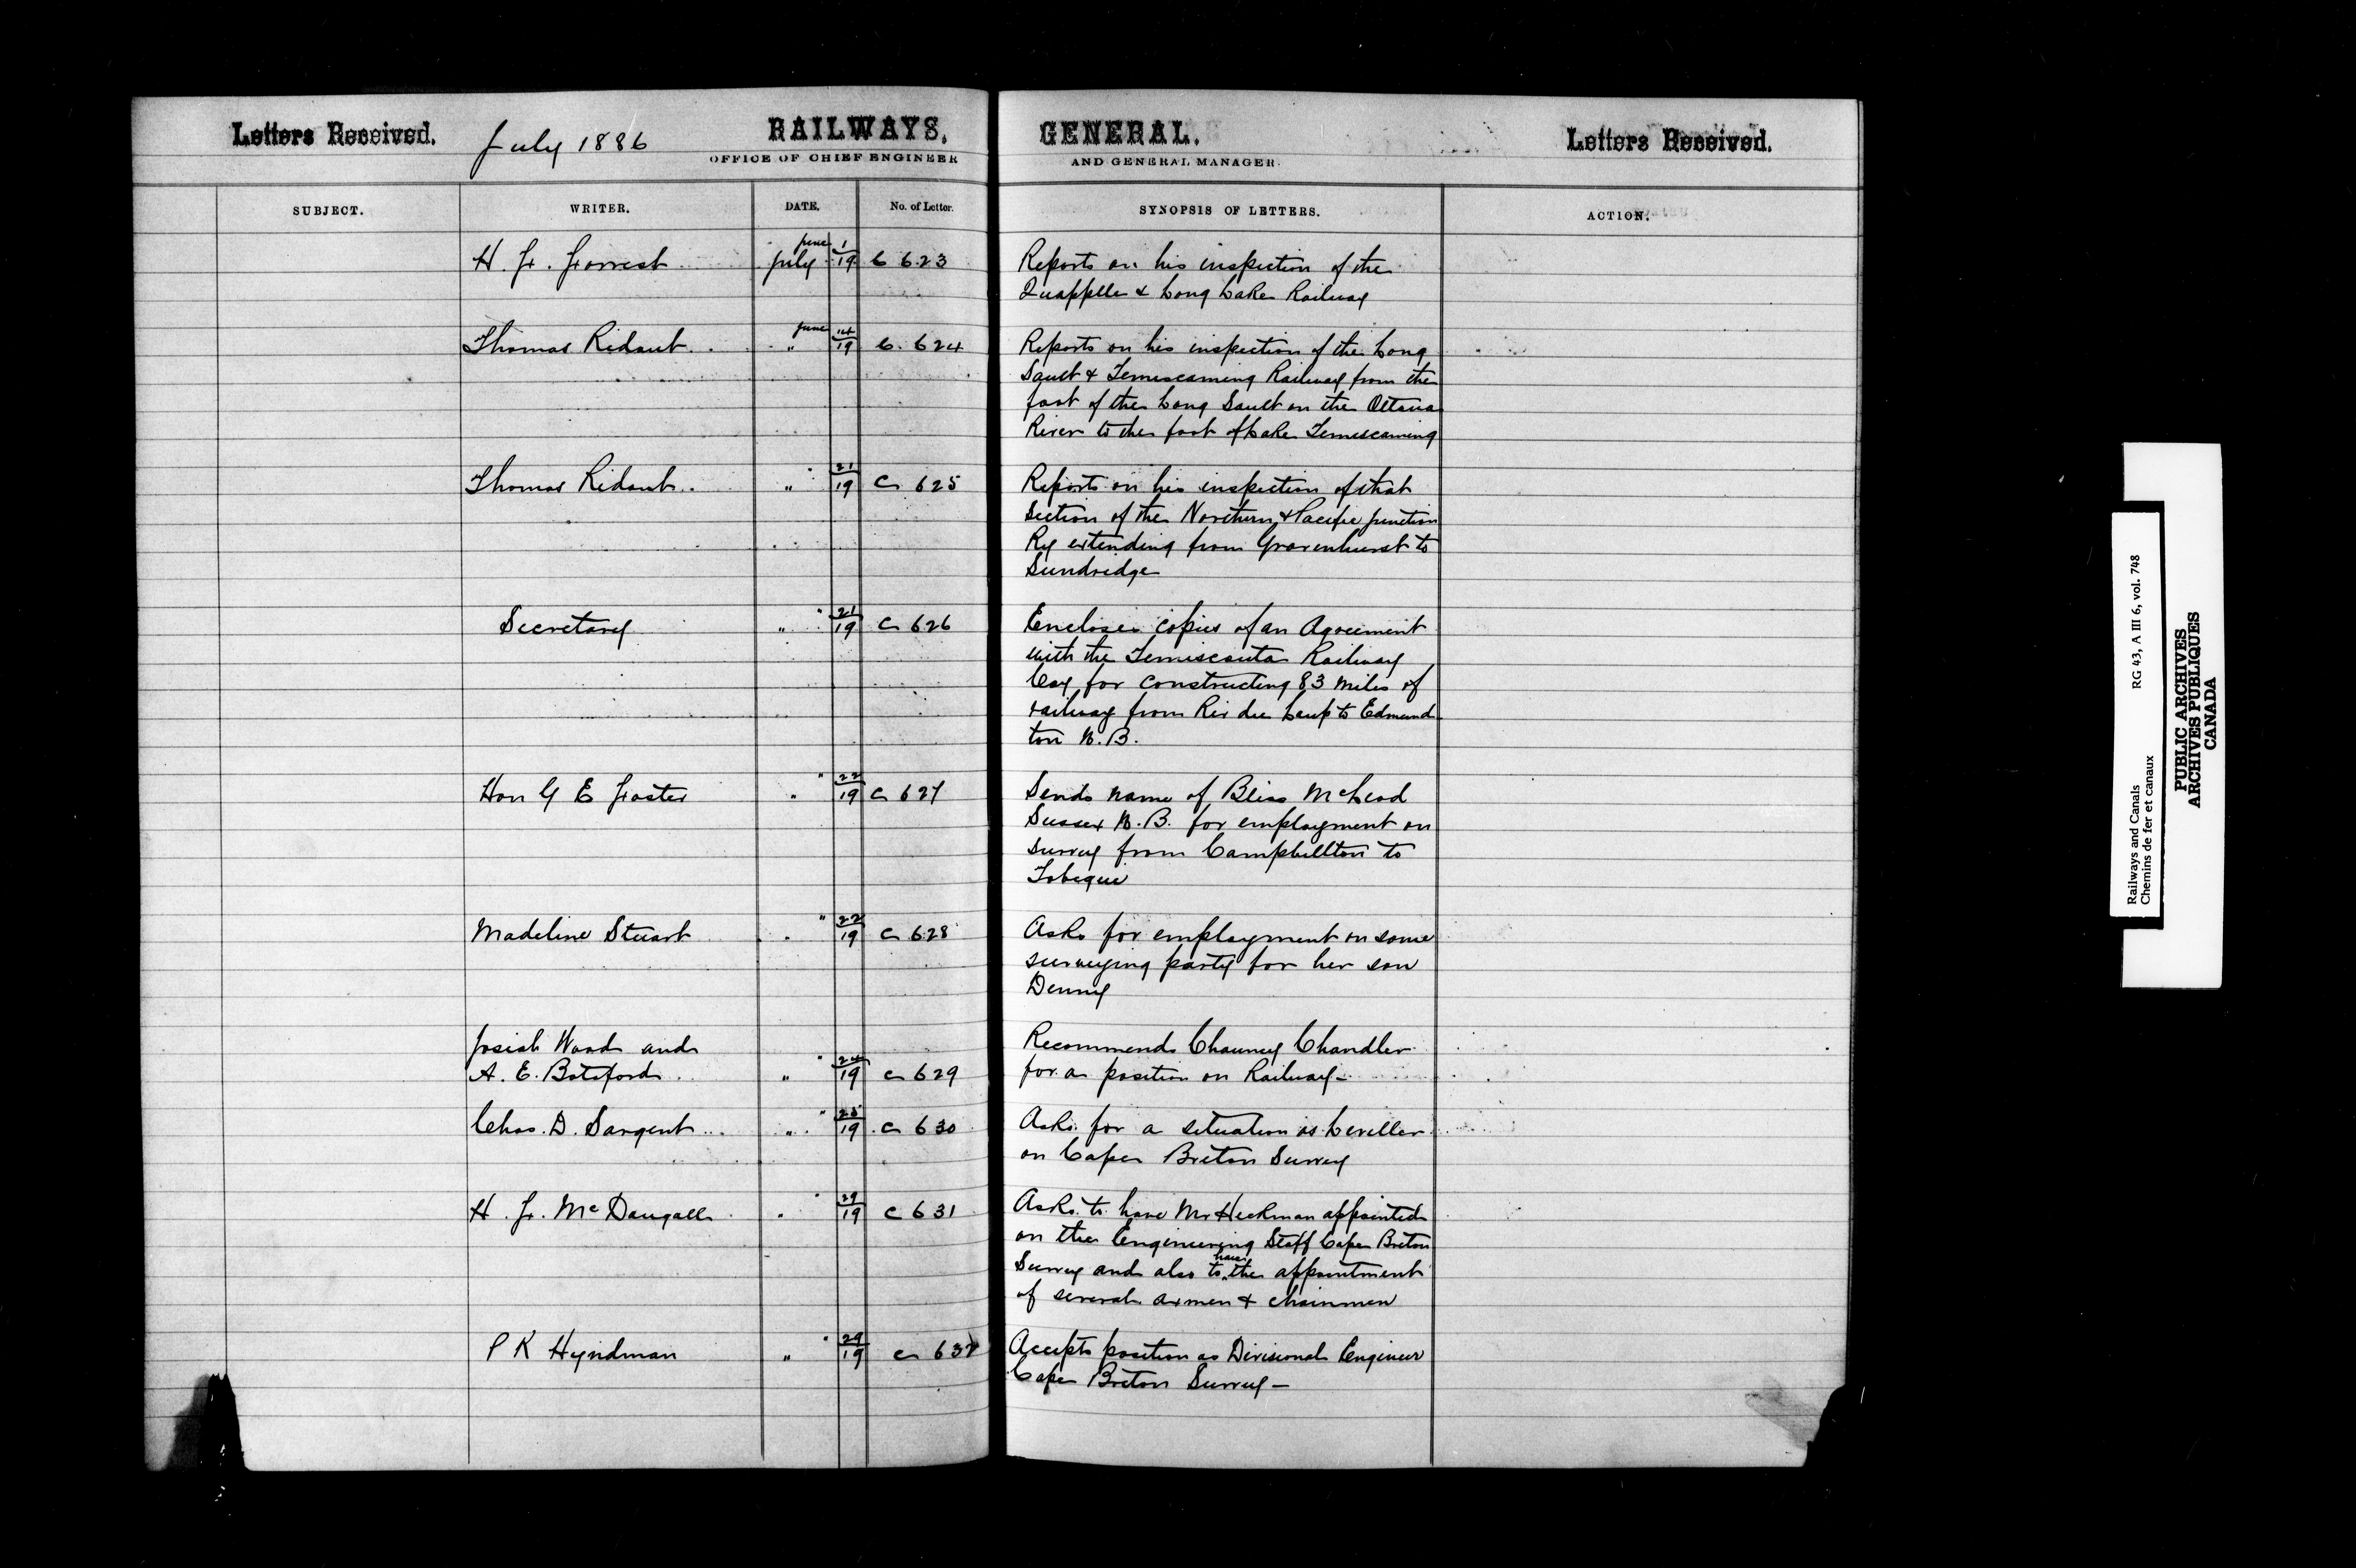 Letters Received. July 1886 RAILWAYS, GENERAL. Letters Received.
OFFICE OF CHIEF ENGINEER AND GENERAL MANAGER.
SUBJECT. WRITER. DATE. No. of Letter. SYNOPSIS OF LETTERS. ACTION.
June 1
H. F. Forrest July 19 C 623 Reports on his inspection of the
Quappelle & Long Lake Railway
June 14
Thomas Ridout " 19 C. 624 Reports on his inspection of the Long
Sault & Temiscaming Railway from the
foot of the Long Sault on the Ottawa
River to the foot of Lake Temiscaming
" 21
Thomas Ridout " 19 C 625 Reports on his inspection of that
Section of the Northern & Pacific Junction
Ry extending from Gravenhurst to
Sundridge
" 21
Secretary " 19 C 626 Encloses copies of an Agreement
with the Temiscouta Railway
Coy for constructing 83 miles of
railway from Riv du Loup to Edmund
ton N.B.
" 22
Hon G E Foster " 19 C 627 Sends name of Bliss McLeod
Sussex N.B. for employment on
survey from Campbellton to
Tobique
" 22
Madeline Stuart " 19 C 628 Asks for employment on some
surveying party for her son
Denny
Josiah Wood and Recommends Chauncy Chandler
" 24
A. E. Botsford " 19 C 629 for a position on Railway -
" 25
Chas. D. Sargent " 19 C 630 Asks for a situation as Leveller
on Cape Breton Survey
" 29
H. F. McDougall " 19 C 631 Asks to have Mr Heckman appointed
on the Engineering Staff Cape Breton
have
Survey and also to the appointment
of several axmen & chainmen
" 29
P K Hyndman " 19 C 632 Accepts position as Divisional Engineer
Cape Breton Survey -
Railways and Canals RG 43, A III 6, vol. 748
Chemins de fer et canaux
PUBLIC ARCHIVES
ARCHIVES PUBLIQUES
CANADA